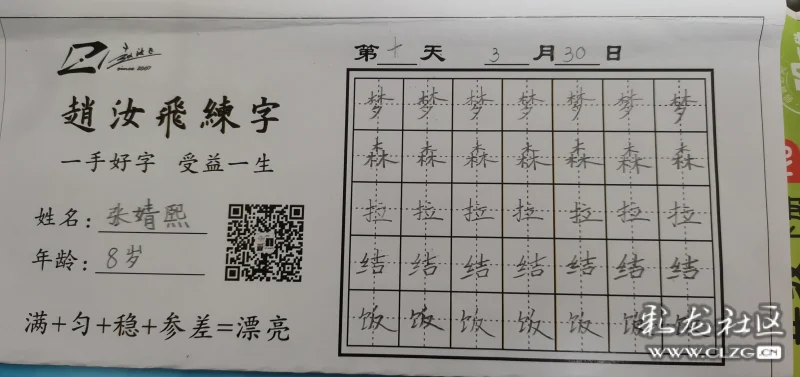 since 2007
趙汝飛練字
一手好字 受益一生
姓名：张婧熙
年龄：8岁
满+匀+稳+参差=漂亮
第十天 3月30日
梦梦梦梦梦梦梦
森森森森森森森
拉拉拉拉拉拉拉
结结结结结结结
饭饭饭饭饭饭饭
彩龙社区
WWW.CLZG.CN